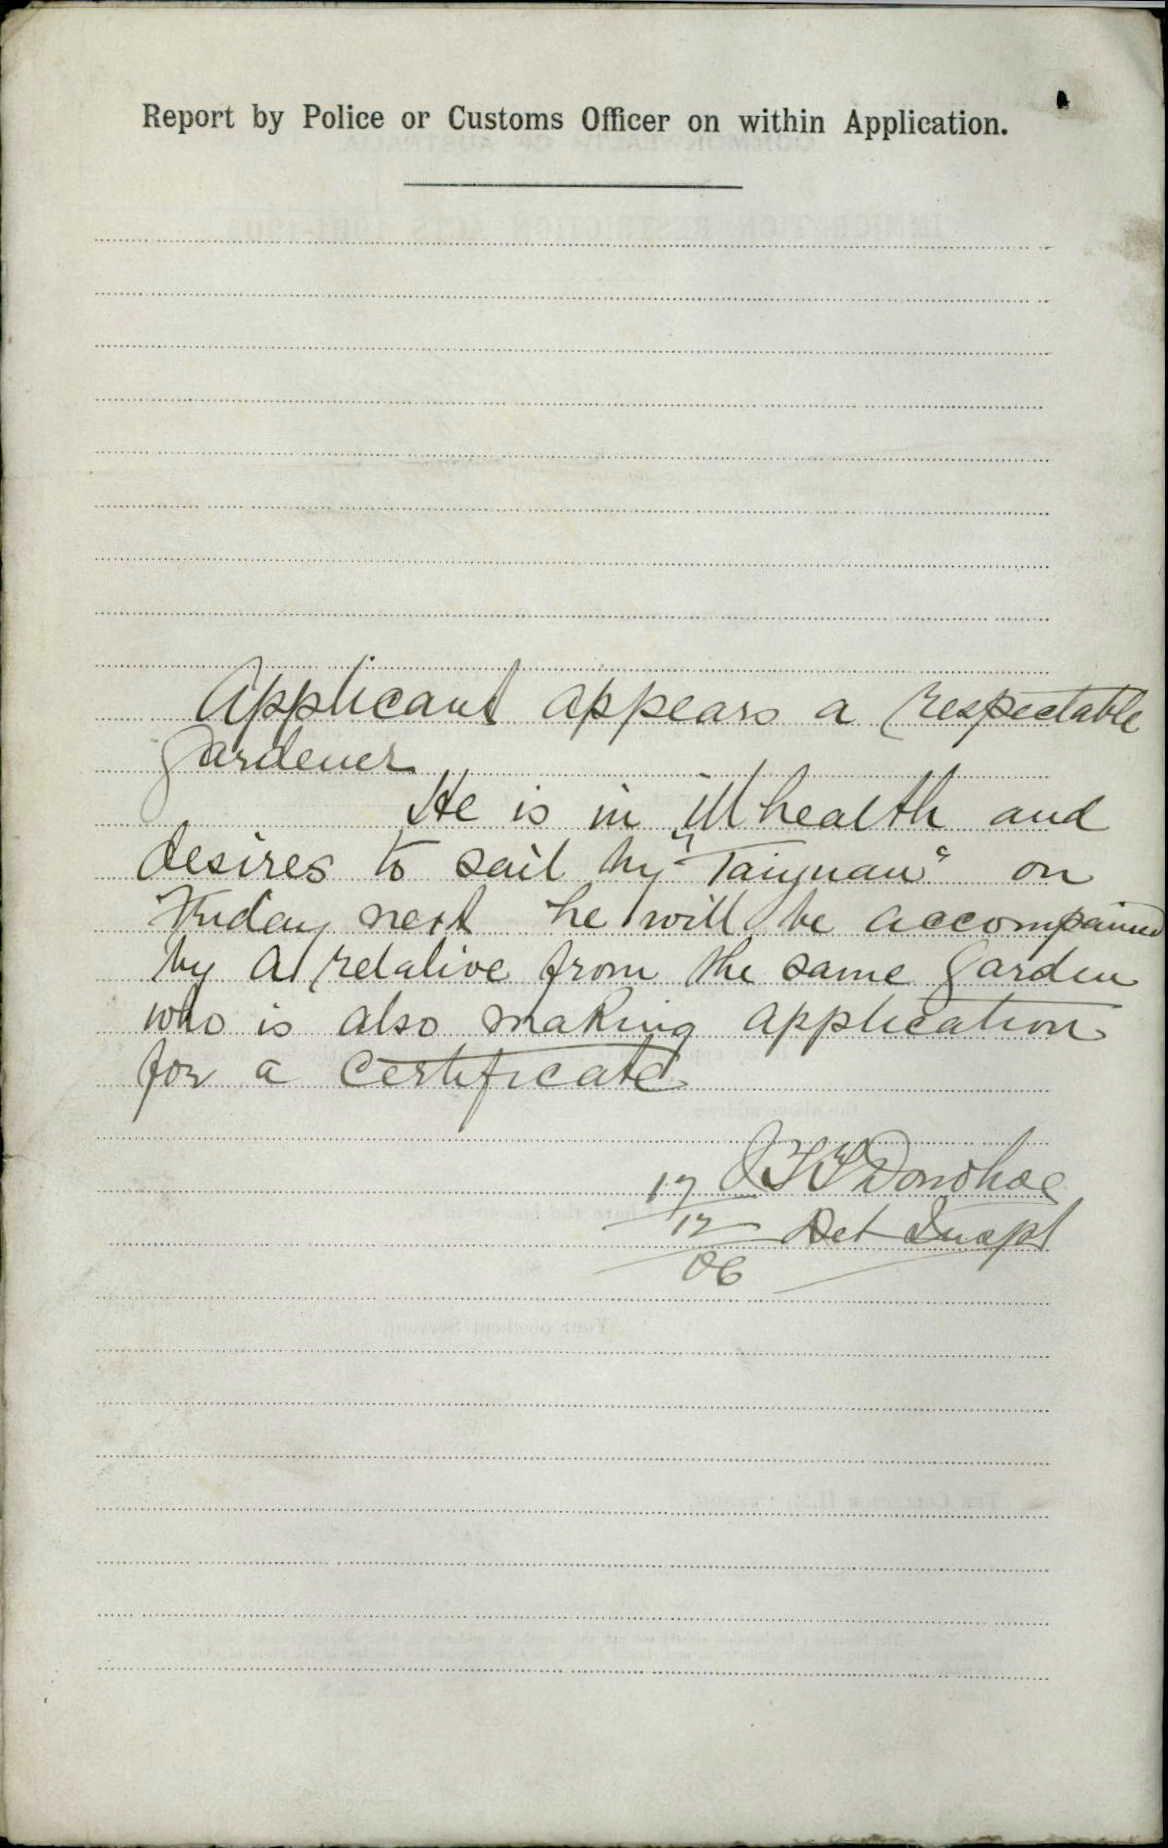 Report by Police or Customs Officer on within Application.
Applicant appears a respectable
gardener
He is in ill health and
desires to sail by "Taiyuan" on
Friday next he will be accompanied
by a relative from the same garden
who is also making application
for a certificate
Donohoe
17
12 Det Inspt
06